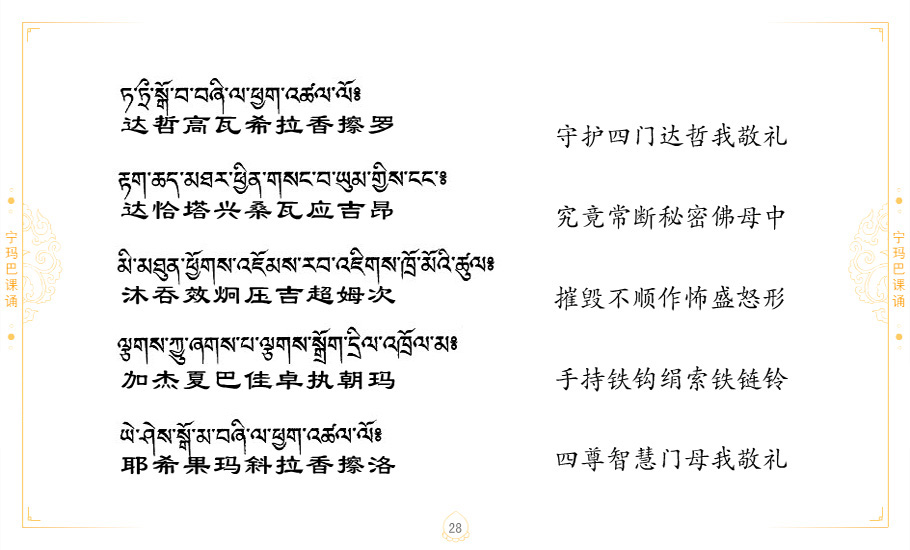 ཏ་ཏྲཱི་སྒོ་བ་བཞི་ལ་ཕྱག་འཚལ་ལོ༔
达哲高瓦希拉香擦罗
守护四门达哲我敬礼
རྟག་ཆད་མཐར་ཕྱིན་གསང་བ་ཡུམ་གྱིས་ངང་༔
达恰塔兴桑瓦应吉昂
究竟常断秘密佛母中
མི་མཐུན་ཕྱོགས་འཇོམས་རབ་འཇིགས་ཁྲོ་མོའི་ཚུལ༔
沐吞效炯压吉超姆次
摧毁不顺作怖盛怒形
ལྕགས་ཀྱུ་ཞགས་པ་ལྕགས་སྒྲོག་དྲིལ་འཁྲོལ་མ༔
加杰夏巴佳卓执朝玛
手持铁钩绢索铁链铃
ཡེ་ཤེས་སྒོ་མ་བཞི་ལ་ཕྱག་འཚལ་ལོ༔
耶希果玛斜拉香擦洛
四尊智慧门母我敬礼
宁玛巴课诵
宁玛巴课诵
28